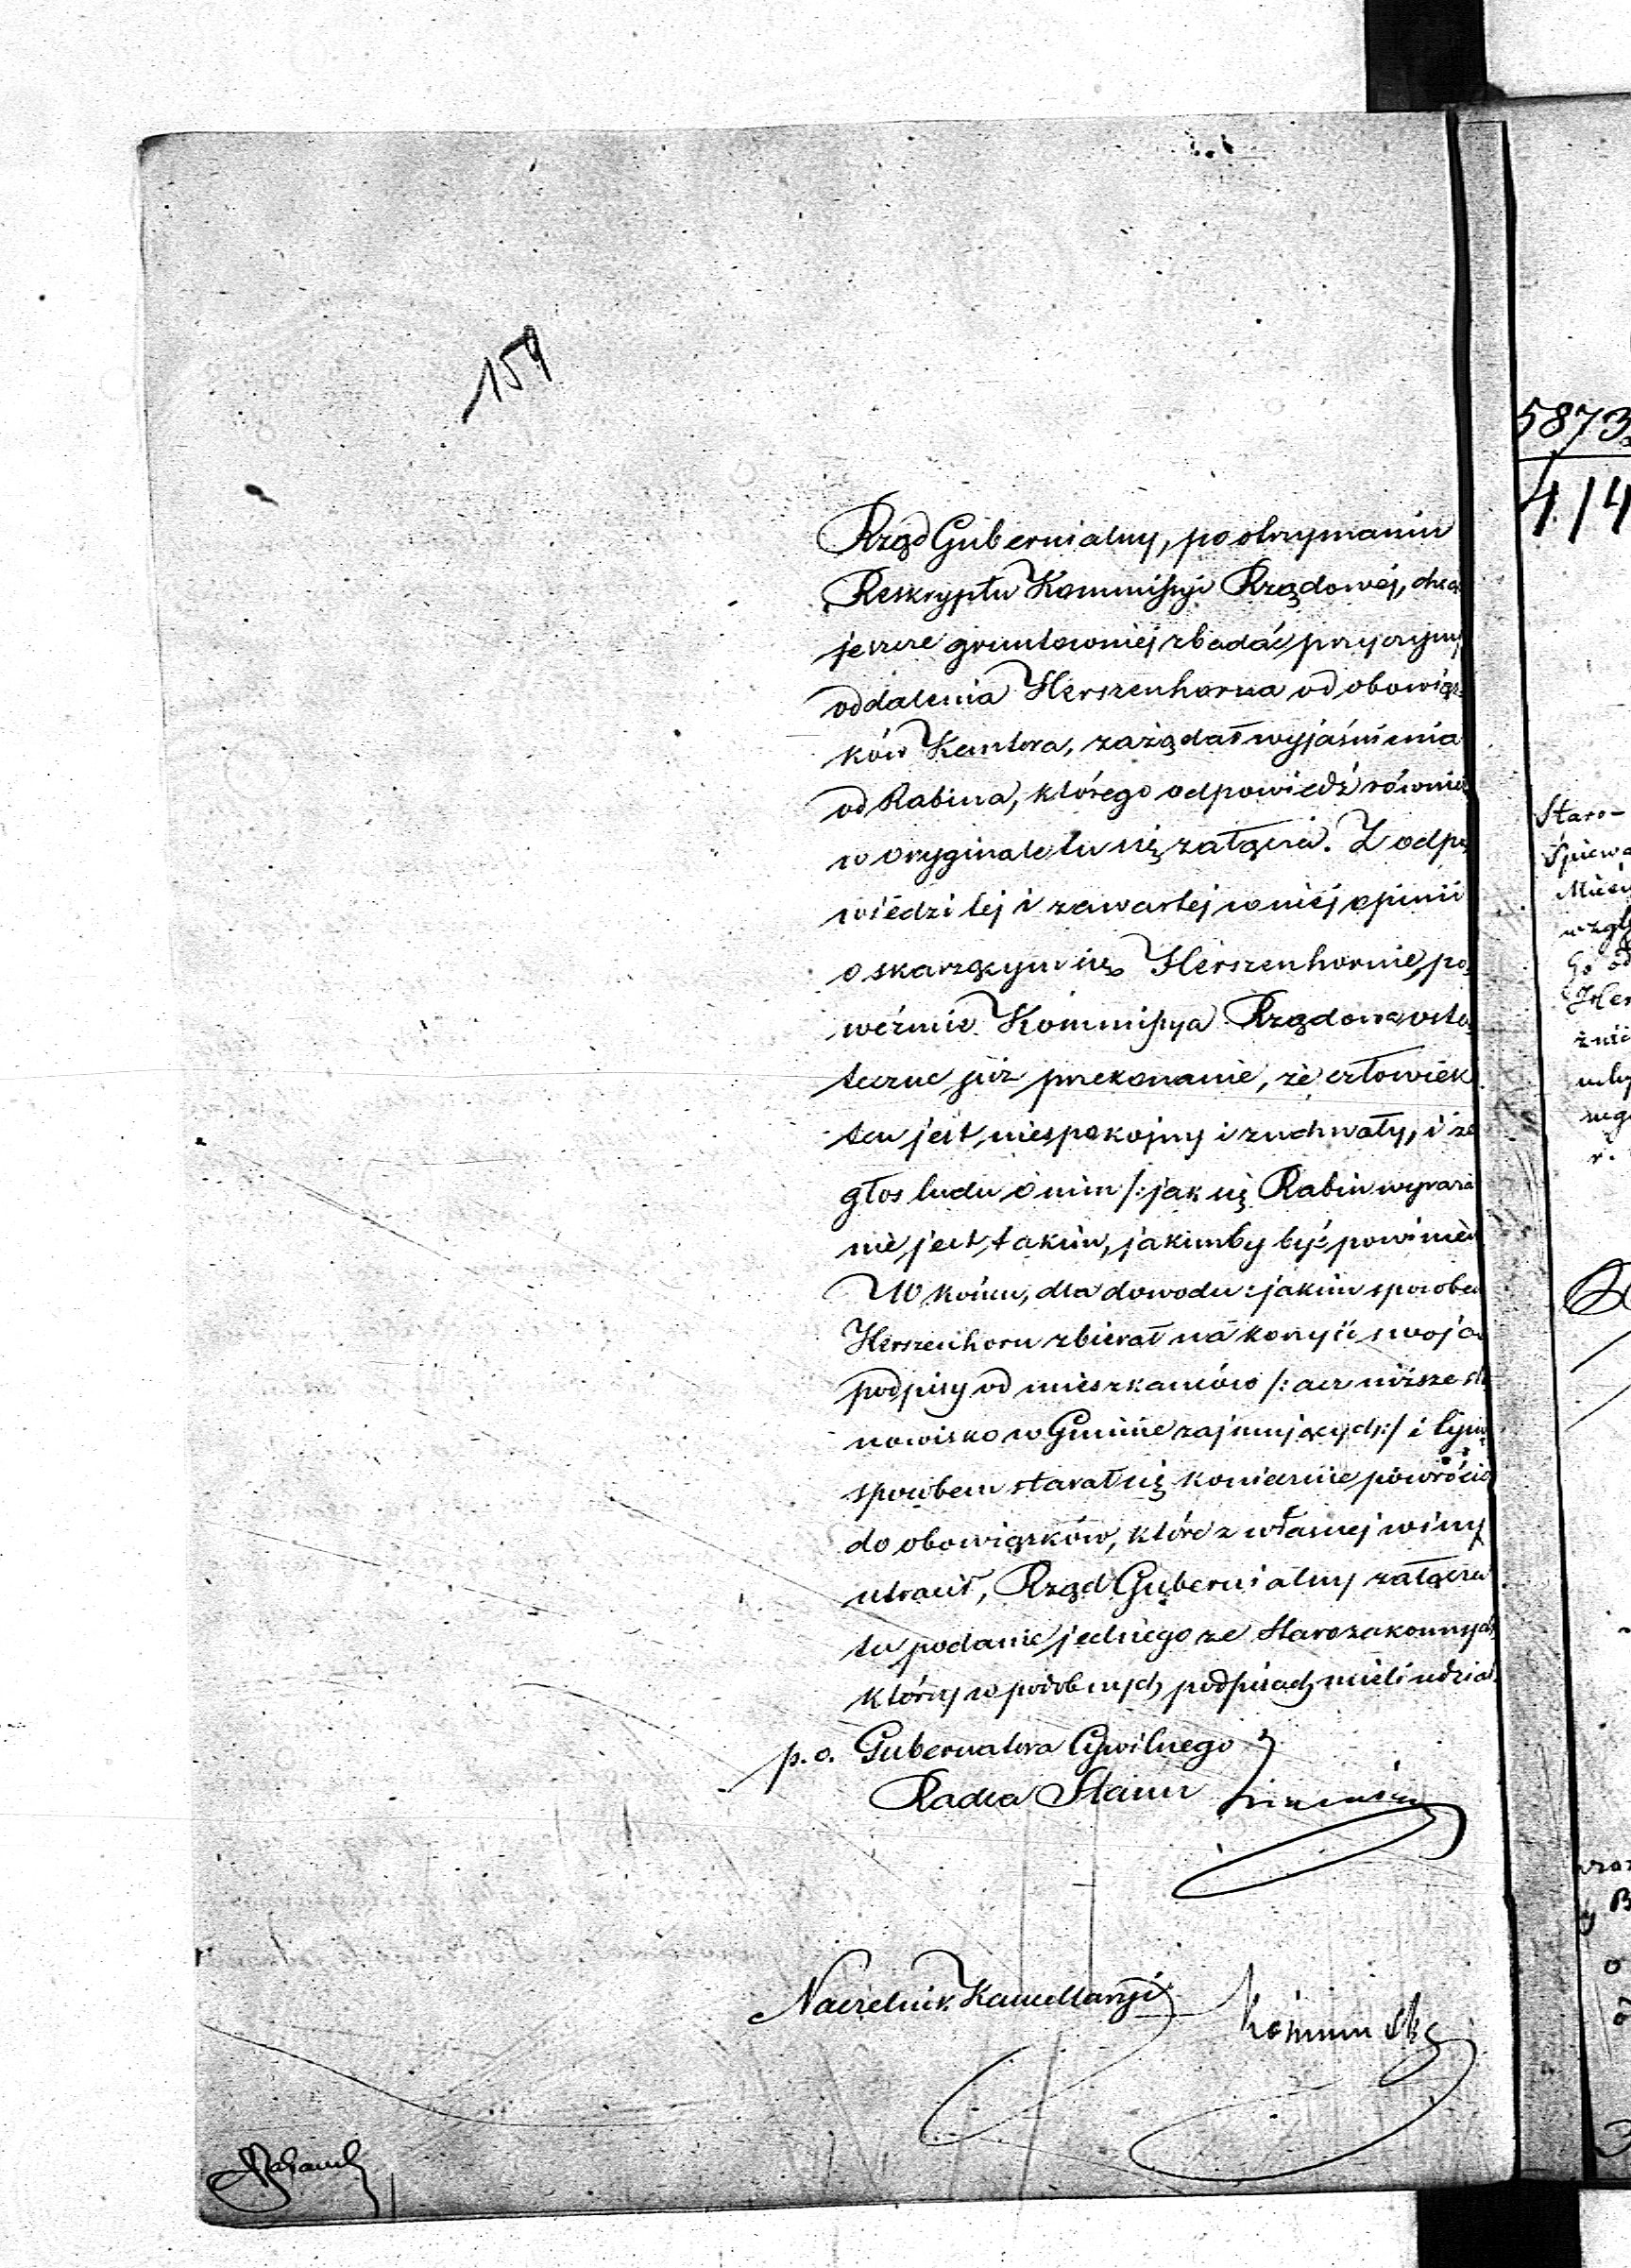 159
Rząd Gubernialny, po otrzymaniu
Reskryptu Kommissyi Rządowéj, chcąc
jeszcze gruntowniej zbadać przyczyny
oddalenia Herszenhorna od obowiąz-
ków Kantora, zażądał wyjaśnienia
od Rabina, którego odpowiedź również
w oryginale tu się załącza. Z odpo
wiedzi tej i zawartej w niéj opinii
o skarzącym się Herszenhornie, po
weźmie Kommissya Rządowa osta
teczne już przekonanie, że człowiek
ten jest niespokojny i zuchwały, i że
głos ludu o nim /: jak się Rabin wyraża
nie jest takim, jakimby być powinien
W końcu, dla dowodu: jakim sposobem
Herszenhorn zbierał na korzyść swoją
podpisy od mieszkańców /: acz niższe sta
nowisko w Gminie zajmujących :/ i tym
sposobem starał się koniecznie powrócić
do obowiązków, które z własnej winy
utracił, Rząd Gubernialny załącza
tu podanie jednego ze Starozakonnych
którzy w podobnych podpisach mieli udział
p. o. Gubernatora Cywilnego
Radca Stanu
Naczelnik Kancellaryi
5873
4/4
Staro-